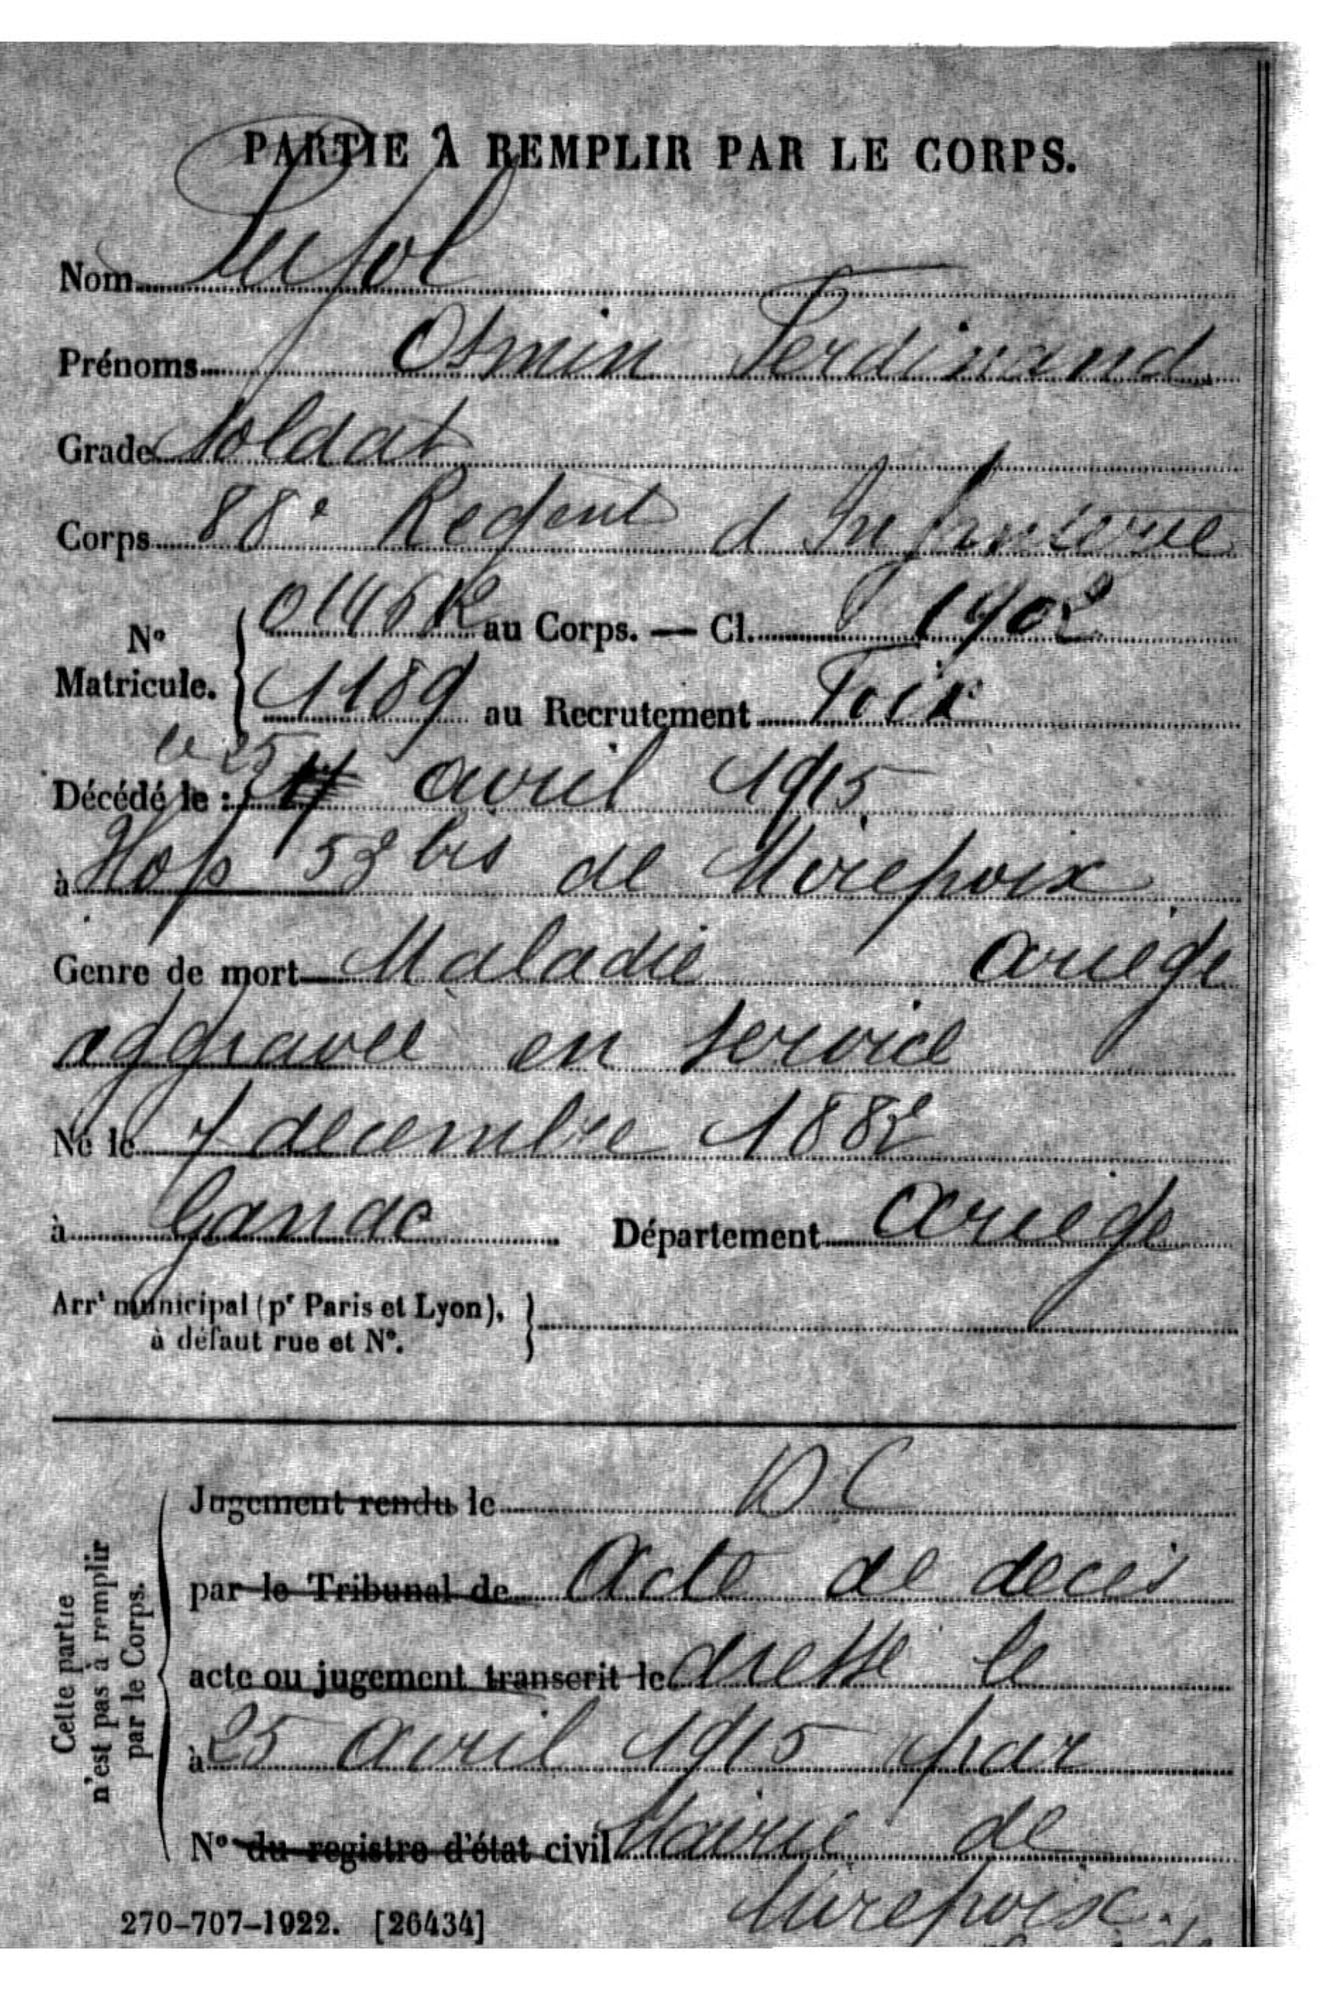 PARTIE À REMPLIR PAR LE CORPS.
Nom Pujol
Prénoms Osmin Ferdinand
Grade Soldat
Corps 88e Regent d Infanterie
No Matricule. au Corps. — Cl. 1902
1189 au Recrutement Foix
le 25
Décédé le : avril 1915
à Hop 52 bis de Mirepoix
Genre de mort Maladie Ariège
aggravée en service
Né le 7 decembre 1882
à Ganac Département Ariège
Arrt municipal (pr Paris et Lyon),
à défaut rue et No.
Cette partie
n'est pas à remplir
par le Corps.
Jugement rendu le DC
par le Tribunal de Acte de decès
acte ou jugement transcrit le dressé le
à 25 avril 1915 par
No du registre d'état civil Mairie de
Mirepoix.
270-707-1922. [26434]